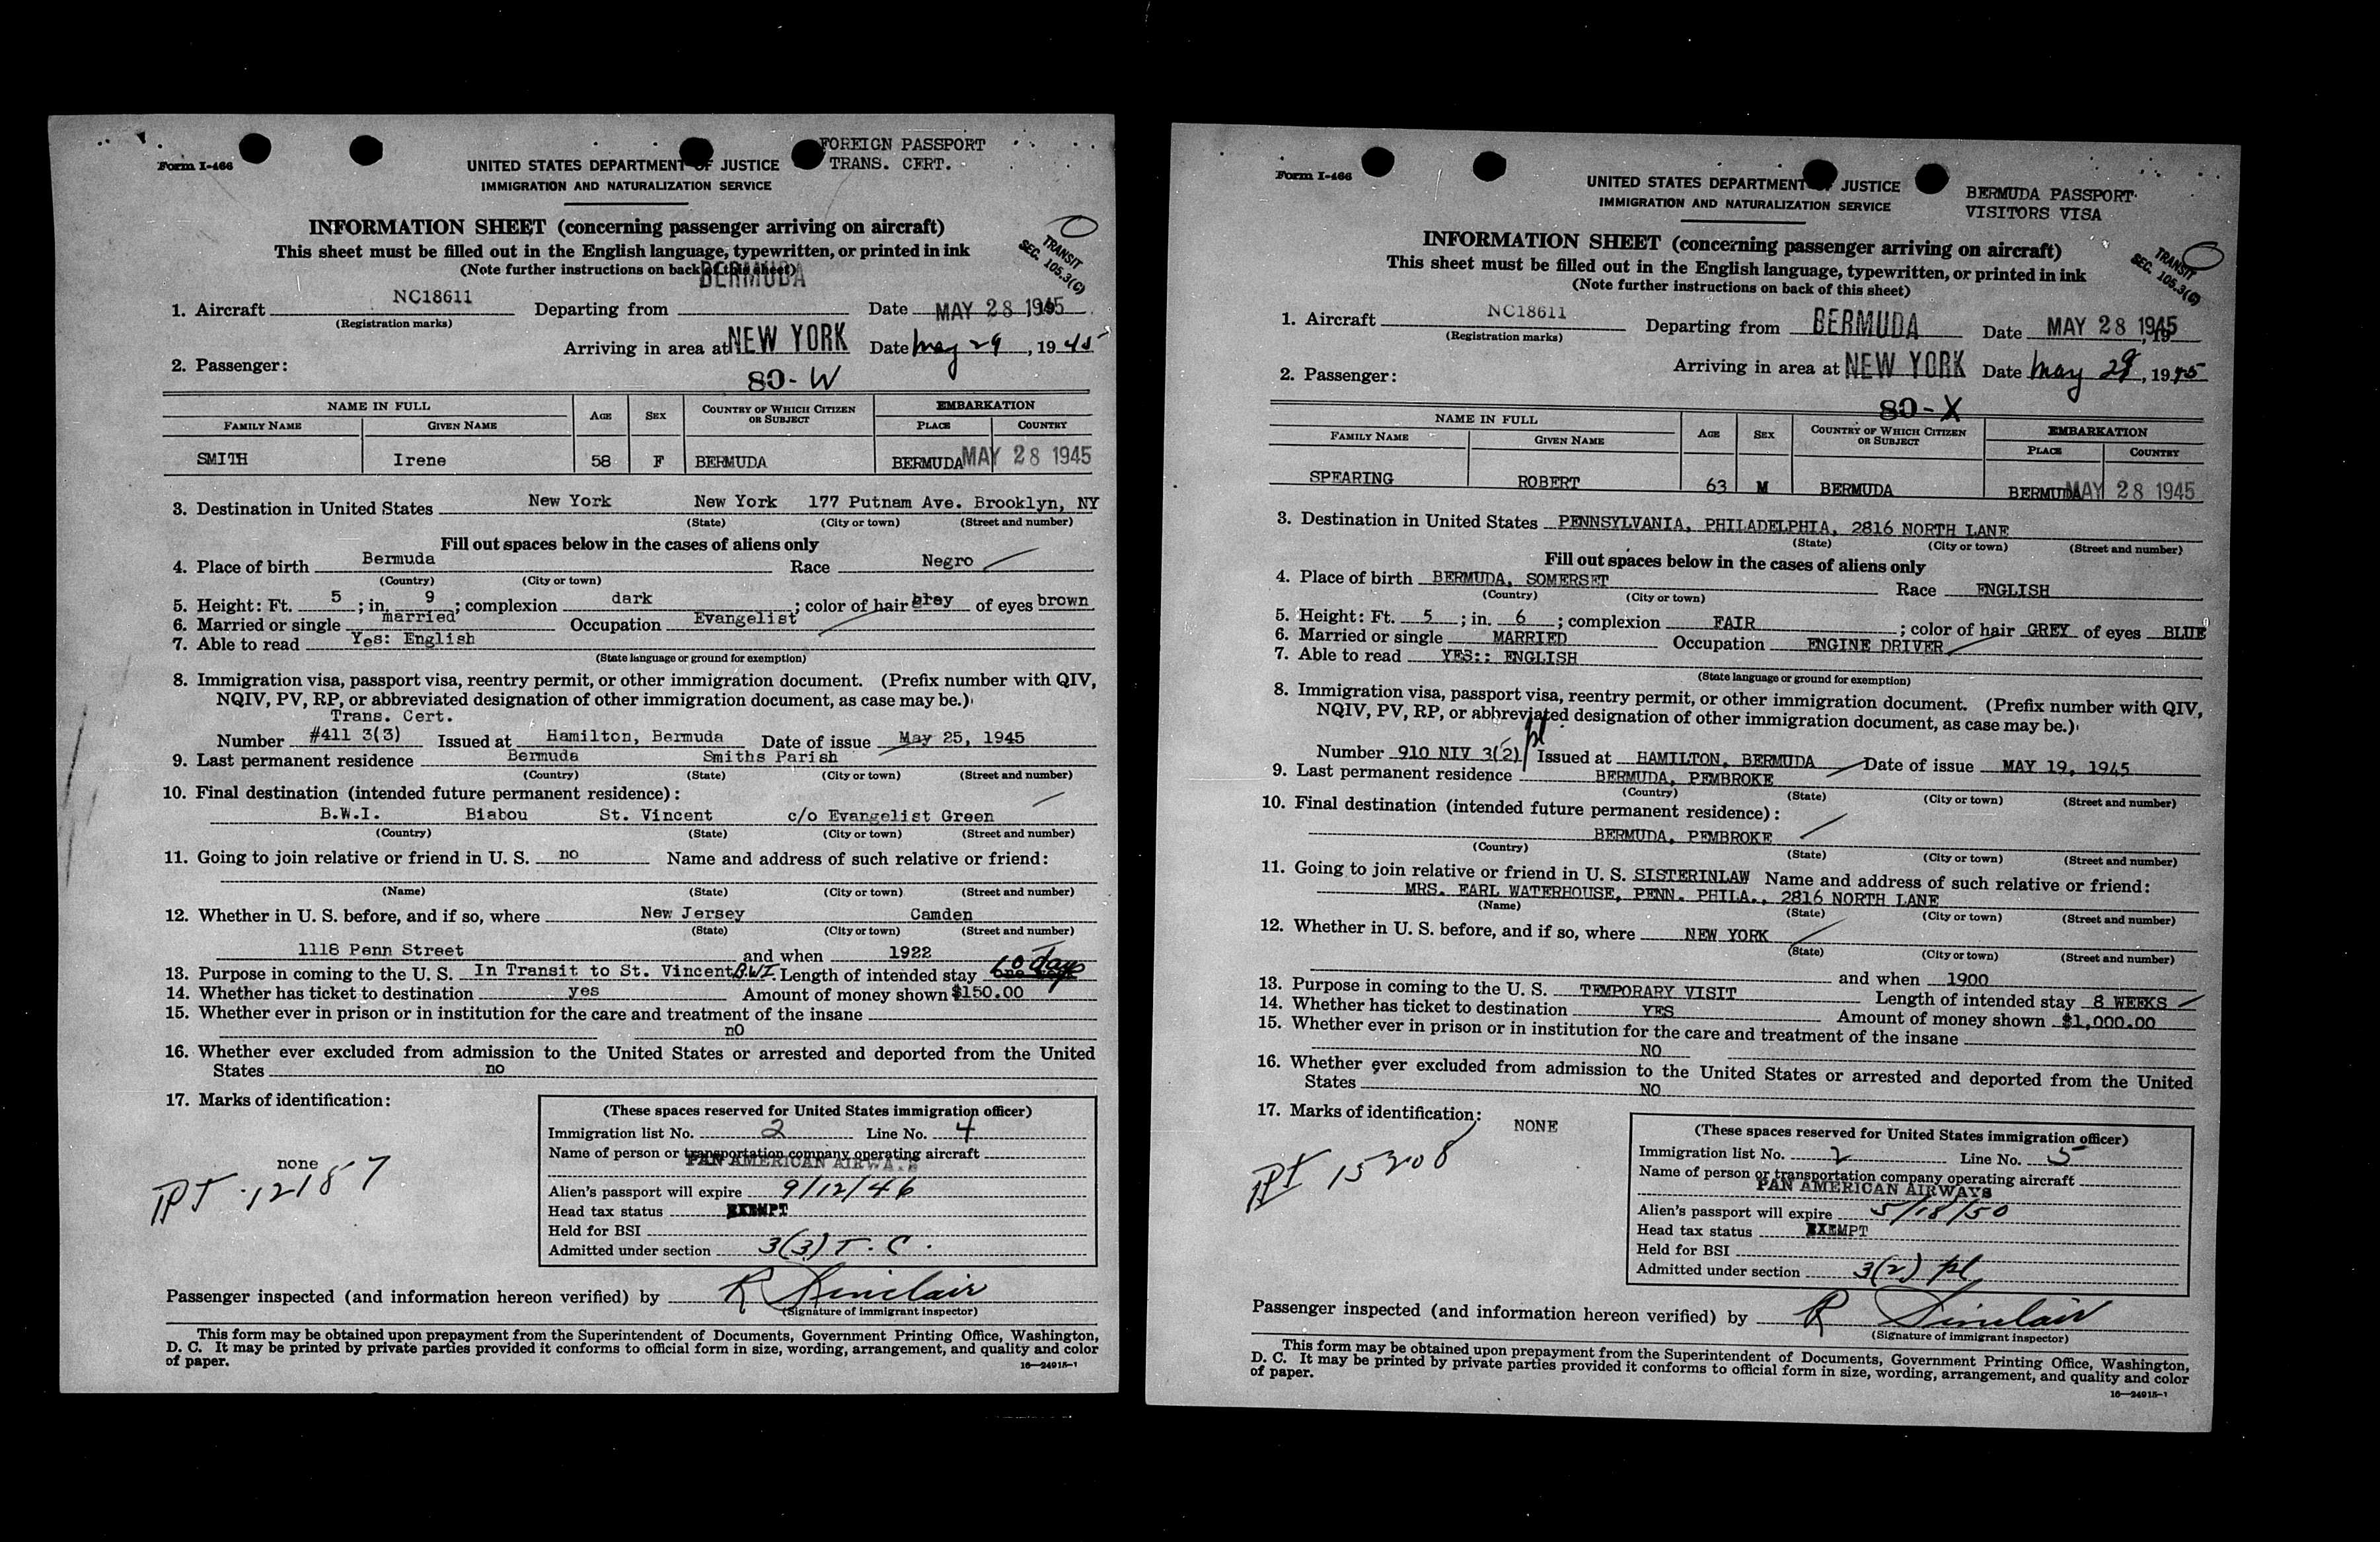 Form I-466
FOREIGN PASSPORT
TRANS. CERT.
UNITED STATES DEPARTMENT OF JUSTICE
IMMIGRATION AND NATURALIZATION SERVICE
INFORMATION SHEET (concerning passenger arriving on aircraft)
This sheet must be filled out in the English language, typewritten, or printed in ink
(Note further instructions on back of this sheet)
TRANSIT
SEC. 105.3(C)
BERMUDA
1. Aircraft NC18611 Departing from Date MAY 28 1945
(Registration marks)
Arriving in area at NEW YORK Date May 29, 1945
2. Passenger:
80-W
NAME IN FULL AGE SEX COUNTRY OF WHICH CITIZEN OR SUBJECT EMBARKATION
FAMILY NAME GIVEN NAME PLACE COUNTRY
SMITH Irene 58 F BERMUDA BERMUDA MAY 28 1945
3. Destination in United States New York New York 177 Putnam Ave. Brooklyn, NY
(State) (City or town) (Street and number)
Fill out spaces below in the cases of aliens only
4. Place of birth Bermuda Race Negro
(Country) (City or town)
5. Height: Ft. 5; in. 9; complexion dark; color of hair grey of eyes brown
6. Married or single married Occupation Evangelist
7. Able to read Yes: English
(State language or ground for exemption)
8. Immigration visa, passport visa, reentry permit, or other immigration document. (Prefix number with QIV,
NQIV, PV, RP, or abbreviated designation of other immigration document, as case may be.)
Trans. Cert.
Number #411 3(3) Issued at Hamilton, Bermuda Date of issue May 25, 1945
9. Last permanent residence Bermuda Smiths Parish
(Country) (State) (City or town) (Street and number)
10. Final destination (intended future permanent residence):
B.W.I. Biabou St. Vincent c/o Evangelist Green
(Country) (State) (City or town) (Street and number)
11. Going to join relative or friend in U. S. no Name and address of such relative or friend:
(Name) (State) (City or town) (Street and number)
12. Whether in U. S. before, and if so, where New Jersey Camden
(State) (City or town) (Street and number)
1118 Penn Street and when 1922
13. Purpose in coming to the U. S. In Transit to St. Vincent B.W.I. Length of intended stay 60 days
14. Whether has ticket to destination yes Amount of money shown $150.00
15. Whether ever in prison or in institution for the care and treatment of the insane
nO
16. Whether ever excluded from admission to the United States or arrested and deported from the United
States no
17. Marks of identification:
none
IPT 12187
(These spaces reserved for United States immigration officer)
Immigration list No. 2 Line No. 4
Name of person or transportation company operating aircraft
PAN AMERICAN AIRWAYS
Alien's passport will expire 9/12/46
Head tax status EXEMPT
Held for BSI
Admitted under section 3(3) T.C.
Passenger inspected (and information hereon verified) by R Sinclair
(Signature of immigrant inspector)
This form may be obtained upon prepayment from the Superintendent of Documents, Government Printing Office, Washington,
D. C. It may be printed by private parties provided it conforms to official form in size, wording, arrangement, and quality and color
of paper.
16—24915-1
Form I-466
BERMUDA PASSPORT
VISITORS VISA
UNITED STATES DEPARTMENT OF JUSTICE
IMMIGRATION AND NATURALIZATION SERVICE
INFORMATION SHEET (concerning passenger arriving on aircraft)
This sheet must be filled out in the English language, typewritten, or printed in ink
(Note further instructions on back of this sheet)
TRANSIT
SEC. 105.3(C)
1. Aircraft NC18611 Departing from BERMUDA Date MAY 28 1945
(Registration marks)
Arriving in area at NEW YORK Date May 29, 1945
2. Passenger:
80-X
NAME IN FULL AGE SEX COUNTRY OF WHICH CITIZEN OR SUBJECT EMBARKATION
FAMILY NAME GIVEN NAME PLACE COUNTRY
SPEARING ROBERT 63 M BERMUDA BERMUDA MAY 28 1945
3. Destination in United States PENNSYLVANIA, PHILADELPHIA, 2816 NORTH LANE
(State) (City or town) (Street and number)
Fill out spaces below in the cases of aliens only
4. Place of birth BERMUDA, SOMERSET Race ENGLISH
(Country) (City or town)
5. Height: Ft. 5; in. 6; complexion FAIR; color of hair GREY of eyes BLUE
6. Married or single MARRIED Occupation ENGINE DRIVER
7. Able to read YES:: ENGLISH
(State language or ground for exemption)
8. Immigration visa, passport visa, reentry permit, or other immigration document. (Prefix number with QIV,
NQIV, PV, RP, or abbreviated designation of other immigration document, as case may be.)
Number 910 NIV 3(2) pl Issued at HAMILTON, BERMUDA Date of issue MAY 19, 1945
9. Last permanent residence BERMUDA, PEMBROKE
(Country) (State) (City or town) (Street and number)
10. Final destination (intended future permanent residence):
BERMUDA, PEMBROKE
(Country) (State) (City or town) (Street and number)
11. Going to join relative or friend in U. S. SISTERINLAW Name and address of such relative or friend:
MRS. EARL WATERHOUSE, PENN. PHILA., 2816 NORTH LANE
(Name) (State) (City or town) (Street and number)
12. Whether in U. S. before, and if so, where NEW YORK
(State) (City or town) (Street and number)
and when 1900
13. Purpose in coming to the U. S. TEMPORARY VISIT Length of intended stay 8 WEEKS
14. Whether has ticket to destination YES Amount of money shown $1,000.00
15. Whether ever in prison or in institution for the care and treatment of the insane
NO
16. Whether ever excluded from admission to the United States or arrested and deported from the United
States NO
17. Marks of identification:
NONE
IPT 15208
(These spaces reserved for United States immigration officer)
Immigration list No. 2 Line No. 5
Name of person or transportation company operating aircraft
PAN AMERICAN AIRWAYS
Alien's passport will expire 5/18/50
Head tax status EXEMPT
Held for BSI
Admitted under section 3(2) pl
Passenger inspected (and information hereon verified) by R Sinclair
(Signature of immigrant inspector)
This form may be obtained upon prepayment from the Superintendent of Documents, Government Printing Office, Washington,
D. C. It may be printed by private parties provided it conforms to official form in size, wording, arrangement, and quality and color
of paper.
16—24915-1